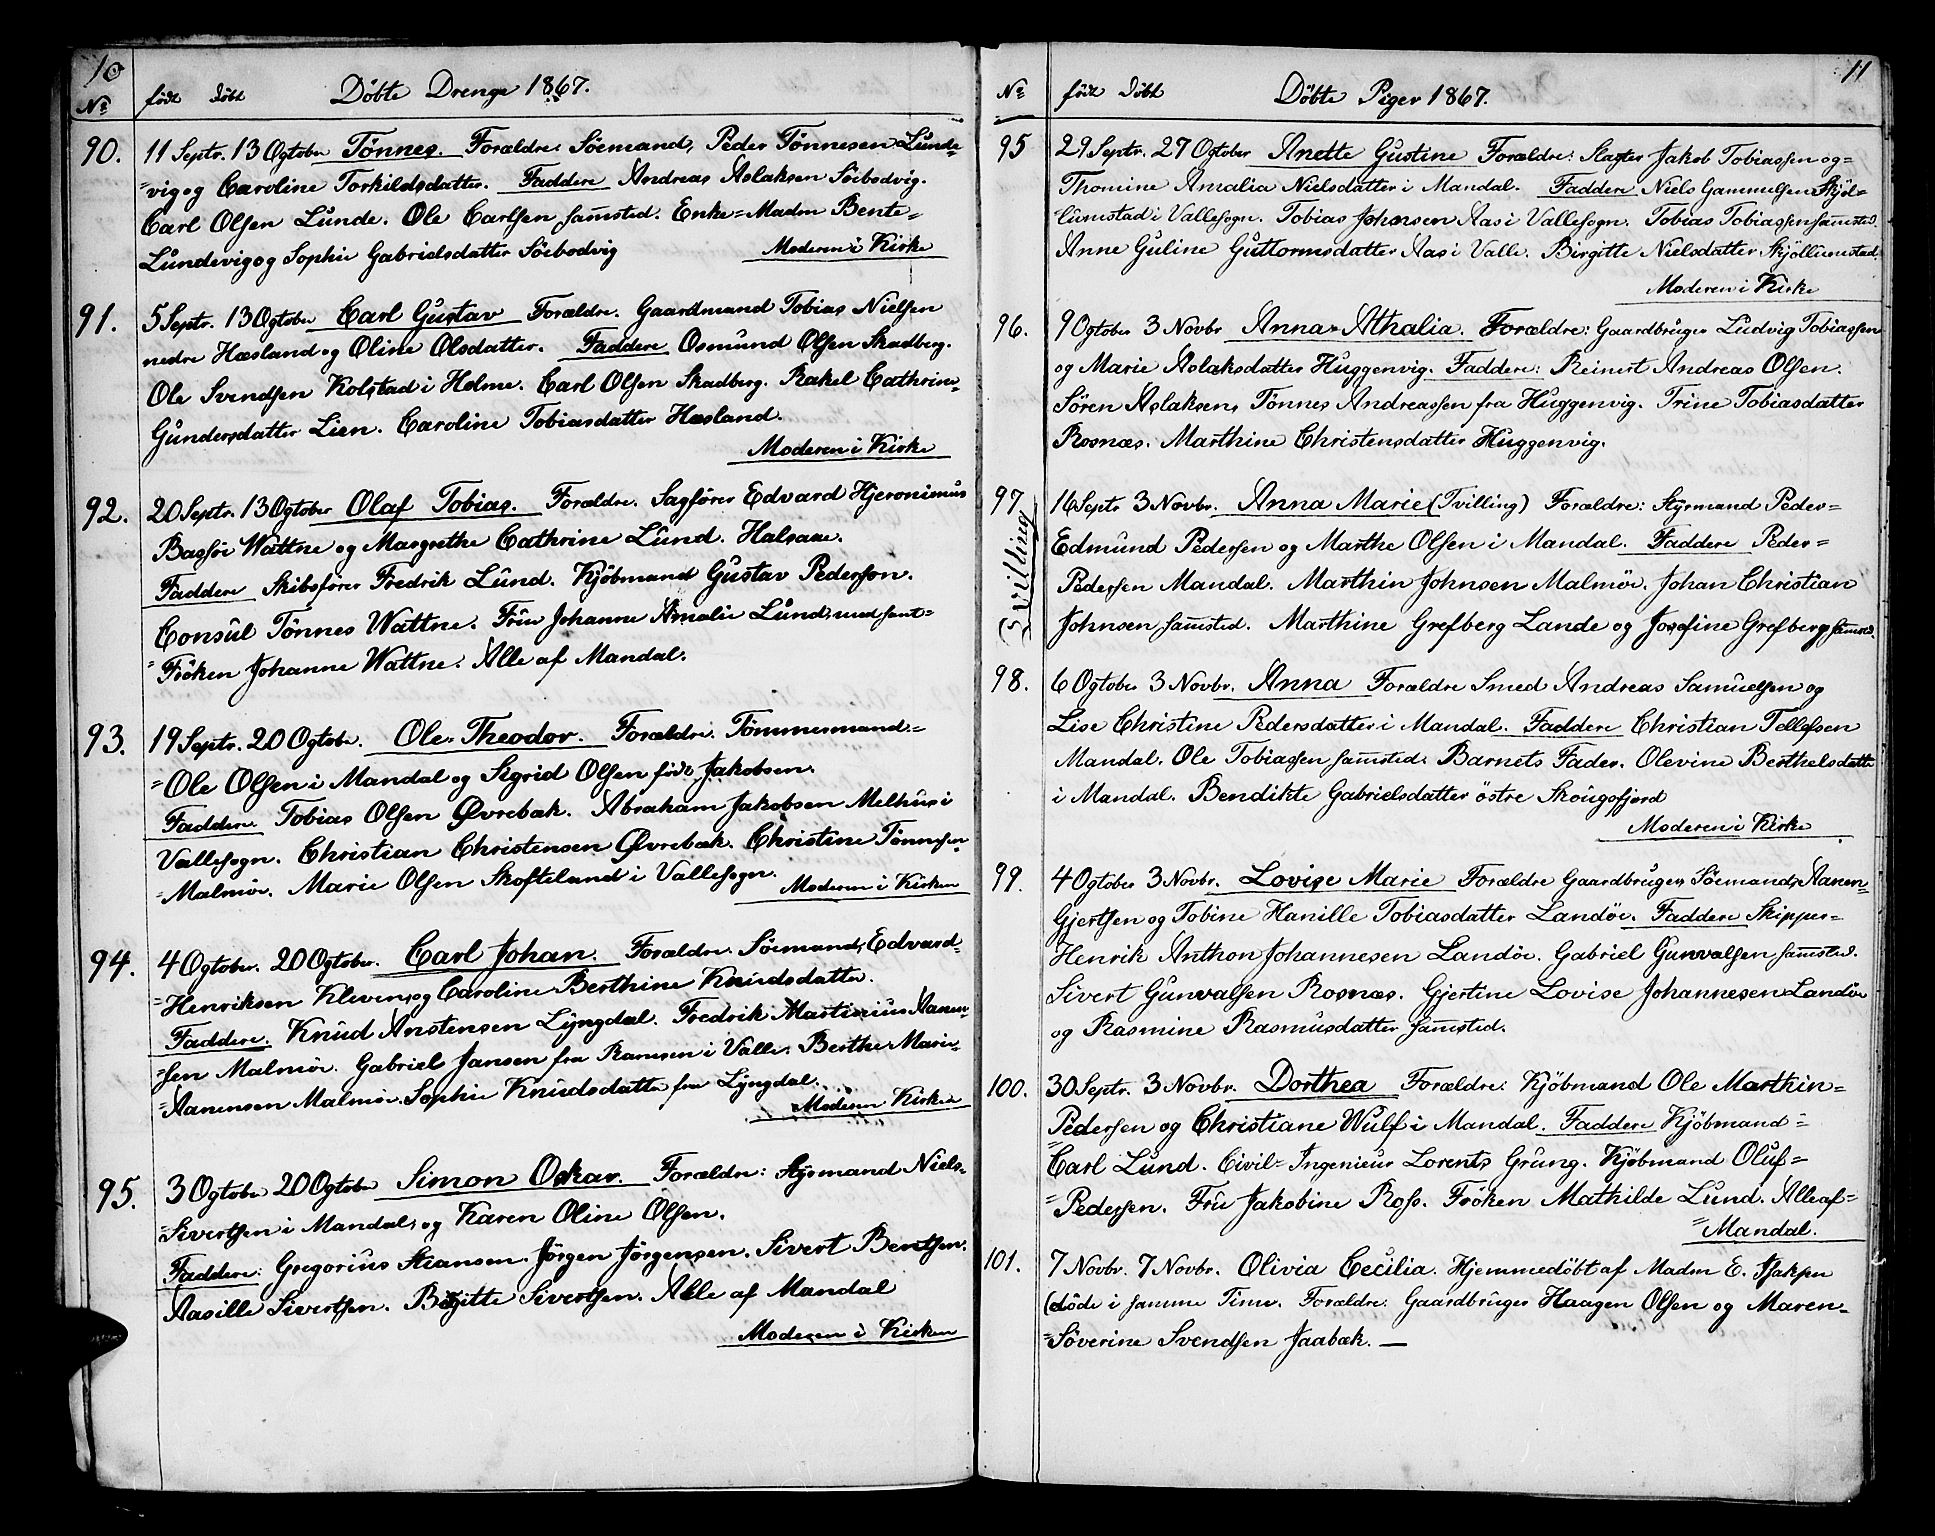 10
No født døbt Döbte Drenge 1867.
90. 11 Septr. 13 Ogtober Tönnes. Forældre. Söemand, Peder Tönnesen Lunde-
=vig og Caroline Torkildsdatter. Faddere Andreas Aslaksen Söebodvig.
Carl Olsen Lunde. Ole Carlsen samsted. Enke=Madm Bente=
Lundevig og Sophie Gabrielsdatter Söebodvig Moderen i Kirke
91. 5 Septr. 13 Ogtober Carl Gustav Forældre. Gaardmand Tobias Nielsen
nedre Hæsland og Oline Olsdatter. Faddere Osmund Olsen Skadberg.
Ole Svendsen Kolstad i Holme. Carl Olsen Skadberg. Rakel Cathrin=
Gundersdatter Lien. Caroline Tobiasdatter Hæsland.
Moderen i Kirke
92. 20 Septr. 13 Ogtober Olaf Tobias. Forældre. Sagförer Edvard Hjeronimus
Bassöe Wattne og Margrethe Cathrine Lund. Halsaae.
Faddere Skibsförer Fredrik Lund. Kjöbmand Gustav Pederson.
Consul Tönnes Wattne. Frue Johanne Amalie Lund, med samt=
=Fröken Johanne Wattne. Alle af Mandal.
93. 19 Septr. 20 Ogtobr. Ole Theodor. Forældre. Tömmermand=
=Ole Olsen i Mandal og Sigrid Olsen födt Jakobsen.
Faddere. Tobias Olsen Øvrebæk. Abraham Jakobsen Melhus i
Vallesogn. Christian Christensen Øvrebæk. Christine Tönnesen
=Malmöe. Marie Olsen Skofteland i Vallesogn. Moderen i Kirken
94. 4 Ogtober. 20 Ogtober. Carl Johan. Forældre. Söemand, Edvard=
=Henriksen Kleven, og Caroline Berthine Knudsdatter.
Faddere. Knud Anstensen Lyngdal. Fredrik Martinius Aanen=
=sen Malmöe. Gabriel Jansen fra Ramsen i Valle. Berthe Marie=
=Aanensen Malmöe. Sophie Knudsdatter fra Lyngdal.
Moderen Kirken
95. 3 Ogtober 20 Ogtober Simon Oskar. Forældre: Styrmand Niels=
=Sivertsen i Mandal, og Karen Oline Olsen.
Faddere: Gregorius Steansen. Jörgen Jörgensen. Sivert Bentsen.
Aasille Sivertsen. Birgitte Sivertsen. Alle af Mandal
Moderen i Kirken
11
No født Døbt Döbte Piger 1867.
95 29 Septr. 27 Ogtober Anette Gustine Forældre: Slagter Jakob Tobiassen og=
Thomine Amalia Nielsdatter i Mandal. Faddere Niels Gammelsen Skjöl=
lumstad i Vallesogn. Tobias Johnsen Aas i Vallesogn. Tobias Tobiassen samsted.
Anne Guline Guttormsdatter Aas i Valle. Birgitte Nielsdatter Skjöllumstad.
Moderen i Kirke
96. 9 Ogtober 3 Novbr. Anna Athalia. Forældre: Gaardbruger Ludvig Tobiassen
og Marie Aslaksdatter Huggenvig. Faddere: Reinert Andreas Olsen.
Sören Aslaksen, Tönnes Andreassen fra Huggenvig. Trine Tobiasdatter
Rosnæs. Marthine Christensdatter Huggenvig.
97 16 Septr 3 Novbr. Anna Marie (Tvilling) Forældre: Styrmand Peder=
Tvilling
Edmund Pedersen og Marthe Olsen i Mandal. Faddere Peder=
Pedersen Mandal. Marthin Johnsen Malmöe. Johan Christian
Johnsen samsted. Marthine Grefberg Lande og Josefine Grefberg samsted.
98. 6 Ogtober 3 Novbr. Anna Forældre Smed Andreas Samuelsen og
Lise Christine Pedersdatter i Mandal. Faddere Christian Tellefsen
Mandal. Ole Tobiassen samsted. Barnets Fader. Olevine Berthelsdatter
i Mandal. Bendikte Gabrielsdatter östre Skougsfjord
Moderen i Kirke
99. 4 Ogtober 3 Novbr. Lovise Marie Forældre Gaardbruger, Söemand, Aanen=
Gjertsen og Tobine Hanille Tobiasdatter Landöe. Faddere Skipper=
Henrik Anthon Johannesen Landöe. Gabriel Gunvalsen samsted.
Sivert Gunvalsen Rosnæs. Gjertine Lovise Johannesen Landöe
og Rasmine Rasmusdatter samsted.
100. 30 Septr. 3 Novbr. Dorthea Forældre: Kjöbmand Ole Marthin=
Pedersen og Christiane Wulf i Mandal. Faddere Kjöbmand=
=Carl Lund. Civil=Ingenieur Lorents Grung. Kjöbmand Oluf=
=Pedersen. Frue Jakobine Ross. Fröken Mathilde Lund. Alle af=
=Mandal.
101. 7 Novbr. 7 Novbr. Olivia Cecilia. Hjemmedöbt af Madm E. Isaksen
(döde i samme Time. Forældre: Gaardbruger Haagen Olsen og Maren=
=Söverine Svendsen Jaabæk. —